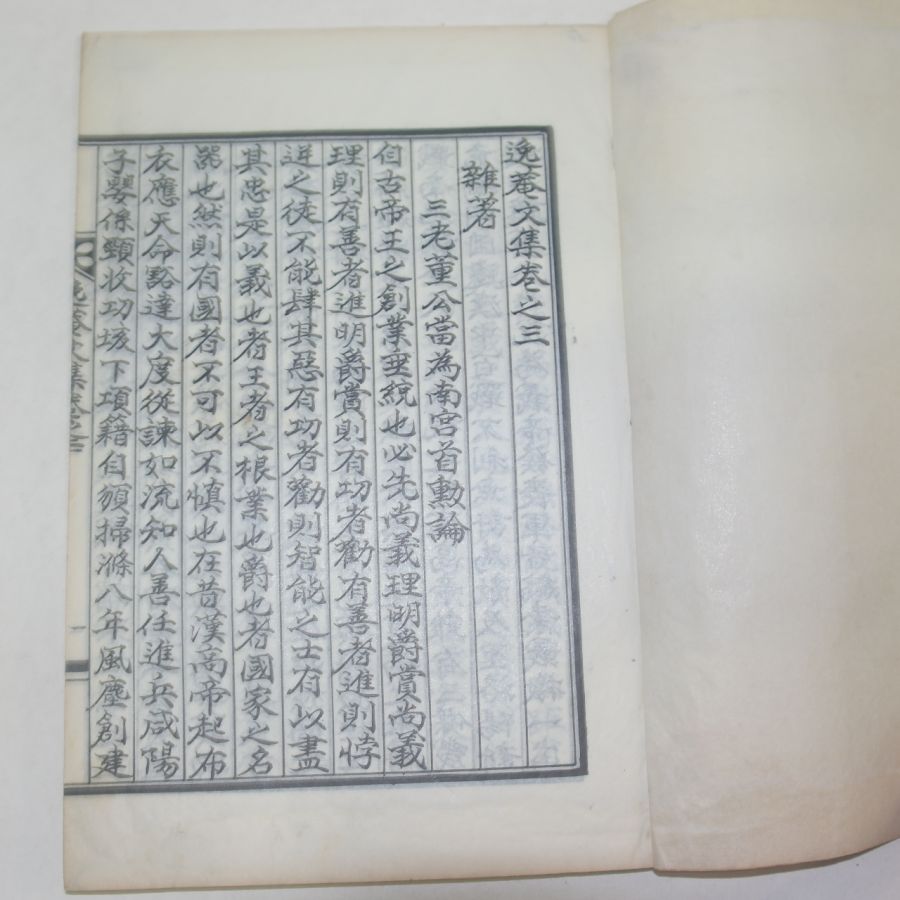 逸菴文集卷之三
雜著
三老董公當為南宮首勳論
自古帝王之創業垂統也必先尚義理明爵賞尚義
理則有善者進明爵賞則有功者勸有善者進則悖
逆之徒不能肆其惡有功者勸則智能之士有以盡
其忠是以義也者王者之根業也爵也者國家之名
器也然則有國者不可以不慎也在昔漢高帝起布
衣應天命豁達大度從諫如流知人善任進兵咸陽
子嬰係頸收功垓下項籍自頸掃滌八年風塵創建